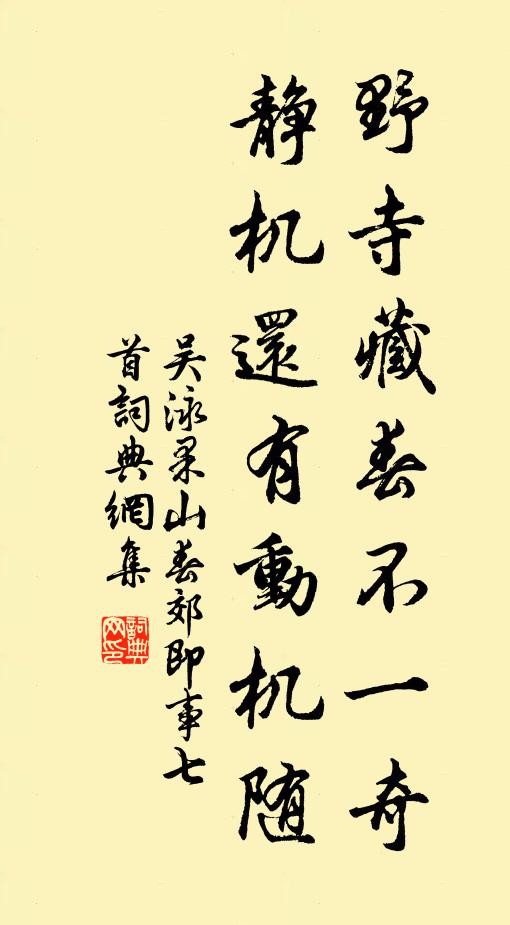 野寺藏春不一奇
静机還有動机随
吴泳果山春郊即事七
首詞典網集
詞典
网印